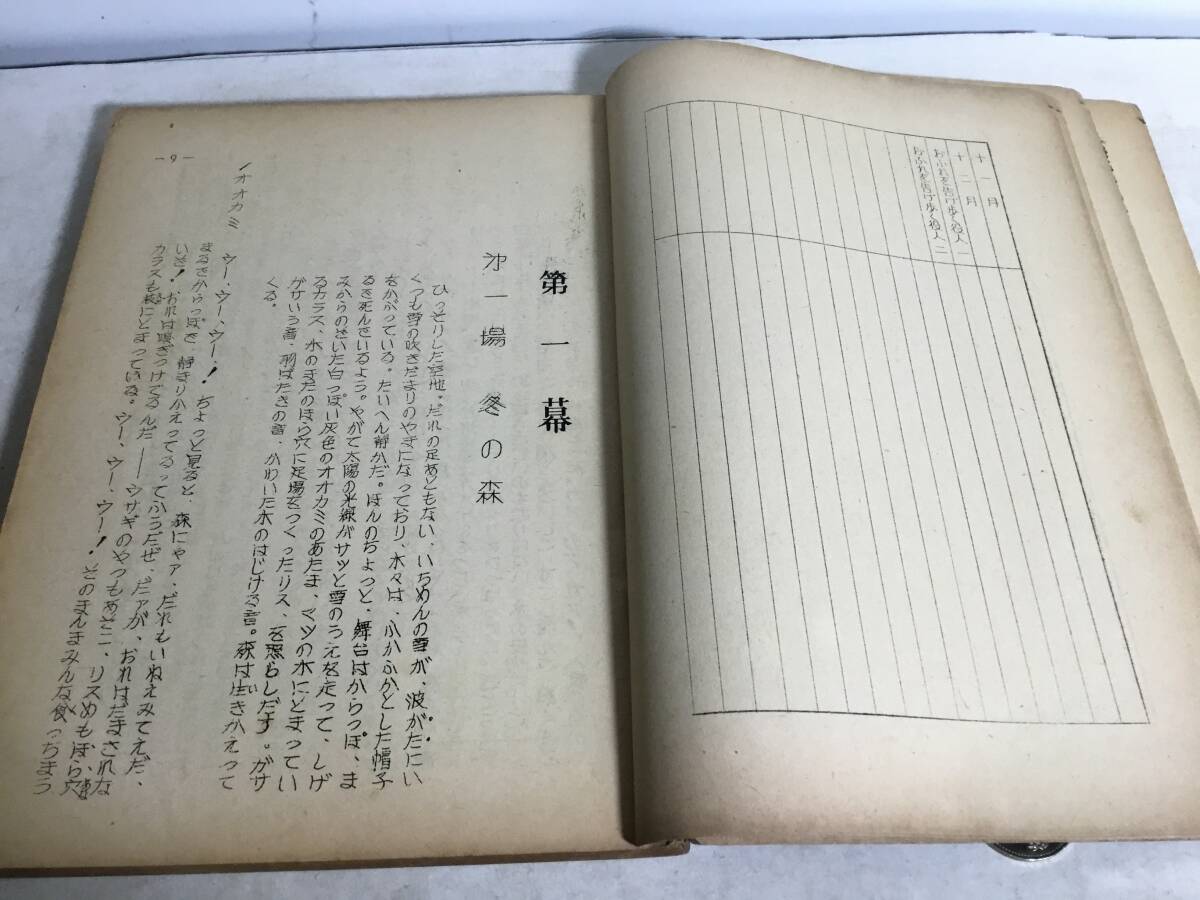 十一月
十二月
おふれを告げ歩く役人 一
おふれを告げ歩く役人 二
第一幕
第一場 冬の森
ひっそりした空地。だれの足あともない、いちめんの雪が、波がたにい
くつも雪の吹きだまりのやまになっており、木々は、ふかふかとした帽子
をかぶっている。たいへん静かだ。ほんのちょっと、舞台はからっぽ、ま
るで死んでいるよう。やがて太陽の光線がサッと雪のうえを走って、しげ
みからのぞいた白っぽい灰色のオオカミのあたま、マツの木にとまってい
るカラス、木のまたのほら穴に足場をつくったリス、を照らしだす。ガサ
ガサいう音、羽ばたきの音、かわいた木のはじける音。森は生きかえって
くる。
オオカミ ウー、ウー、ウー！ ちょっと見ると、森にゃァ、だれもいねえみてえだ、
まるでからっぽで、静まりかえってるってふうだぜ、だァが、おれはだまされな
いぞ！ おれは嗅ぎつけてるんだ──ウサギのやつもあそこ、リスめもほら穴、
カラスも枝にとまっている。ウー、ウー、ウー！ そのまんまみんな食っちまう
－9－